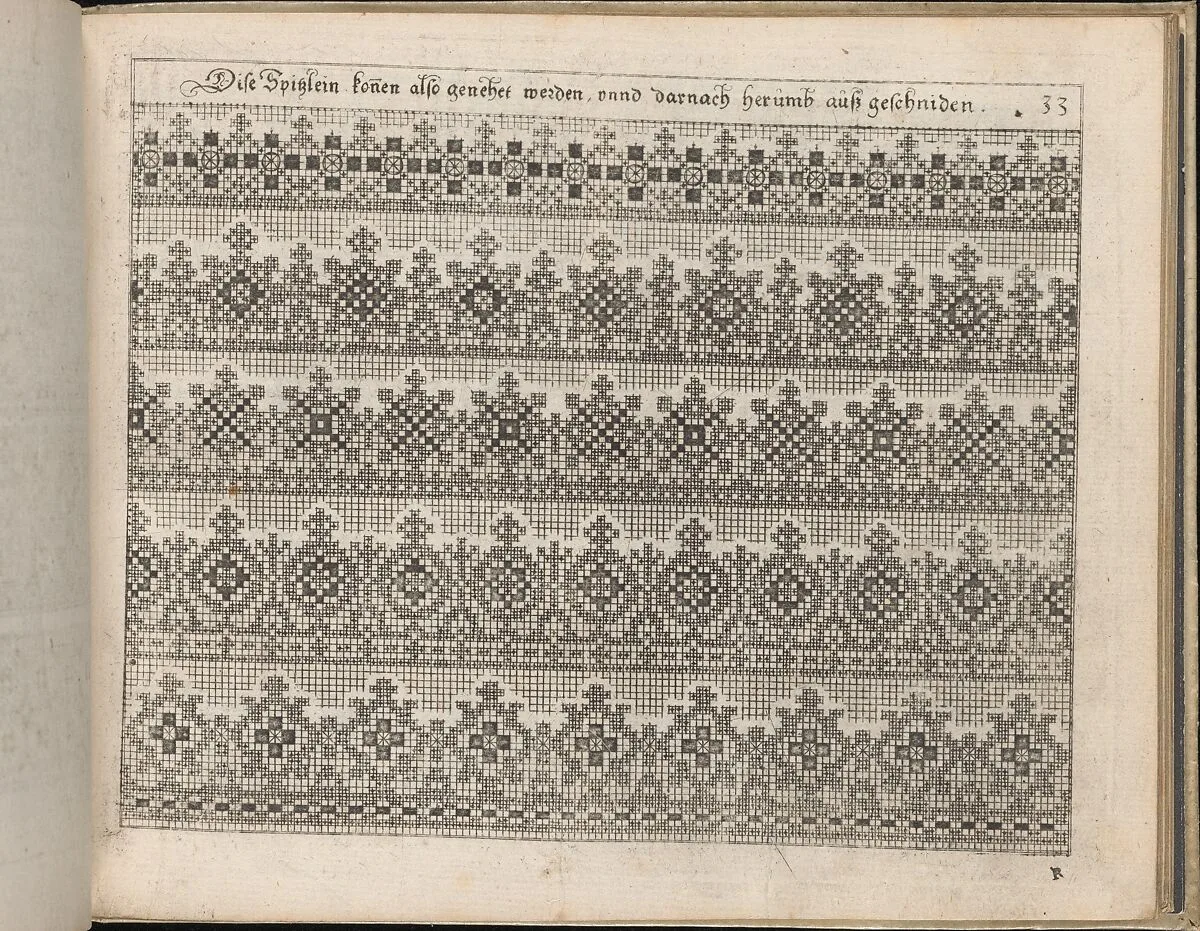 Dise Spitzlein kon̄en also genehet werden, vnnd darnach herumb auß geschniden. 33
R